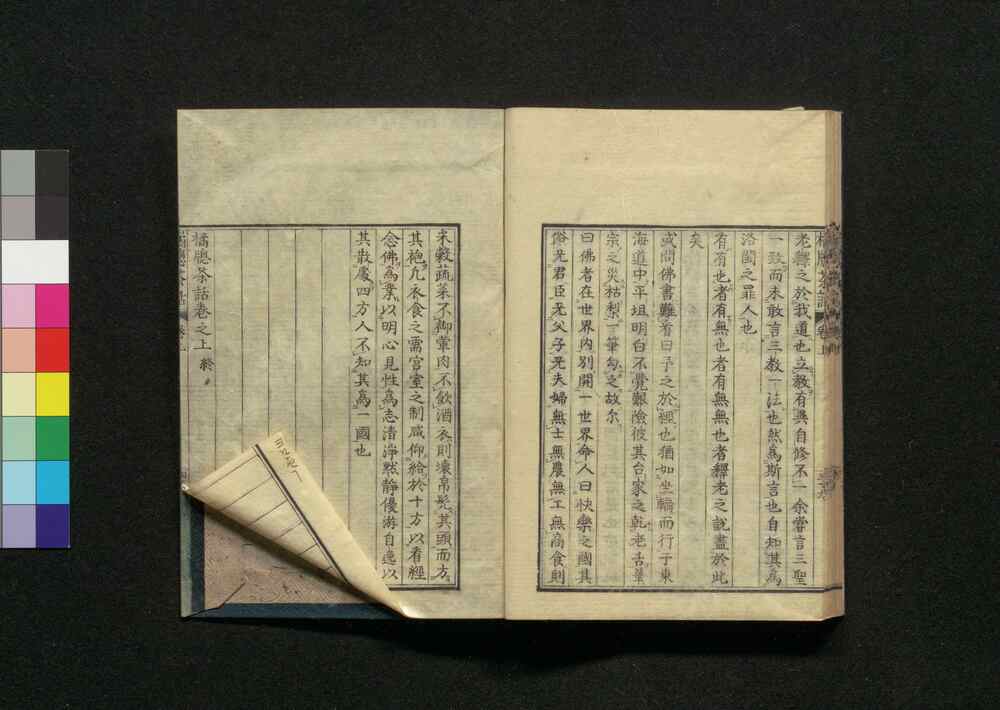 老釋之於我道也立教有異自修不一余嘗言三聖
一致而未敢言三教一法也然為斯言也自知其為
洛閩之罪人也
有有也者有無也者有無無也者釋老之說盡於此
矣
或問佛書難看曰予之於經也猶如坐輪而行于東
海道中平坦明白不覺艱險彼其台家之乾老舌華
宗之災枯梨一筆勾之故尔
曰佛者在世界内別開一世界命人曰快樂之國其
俗旡君臣旡父子旡夫婦無士無農無工無商食則
米穀蔬菜不御葷肉不飲酒衣則壞帛髡其頭而方
其袍凡衣食之需宮室之制咸仰給於十方以看經
念佛為業以明心見性為志清淨然靜優游自逸以
其散處四方人不知其為一國也
橘牕茶話巻之上 終